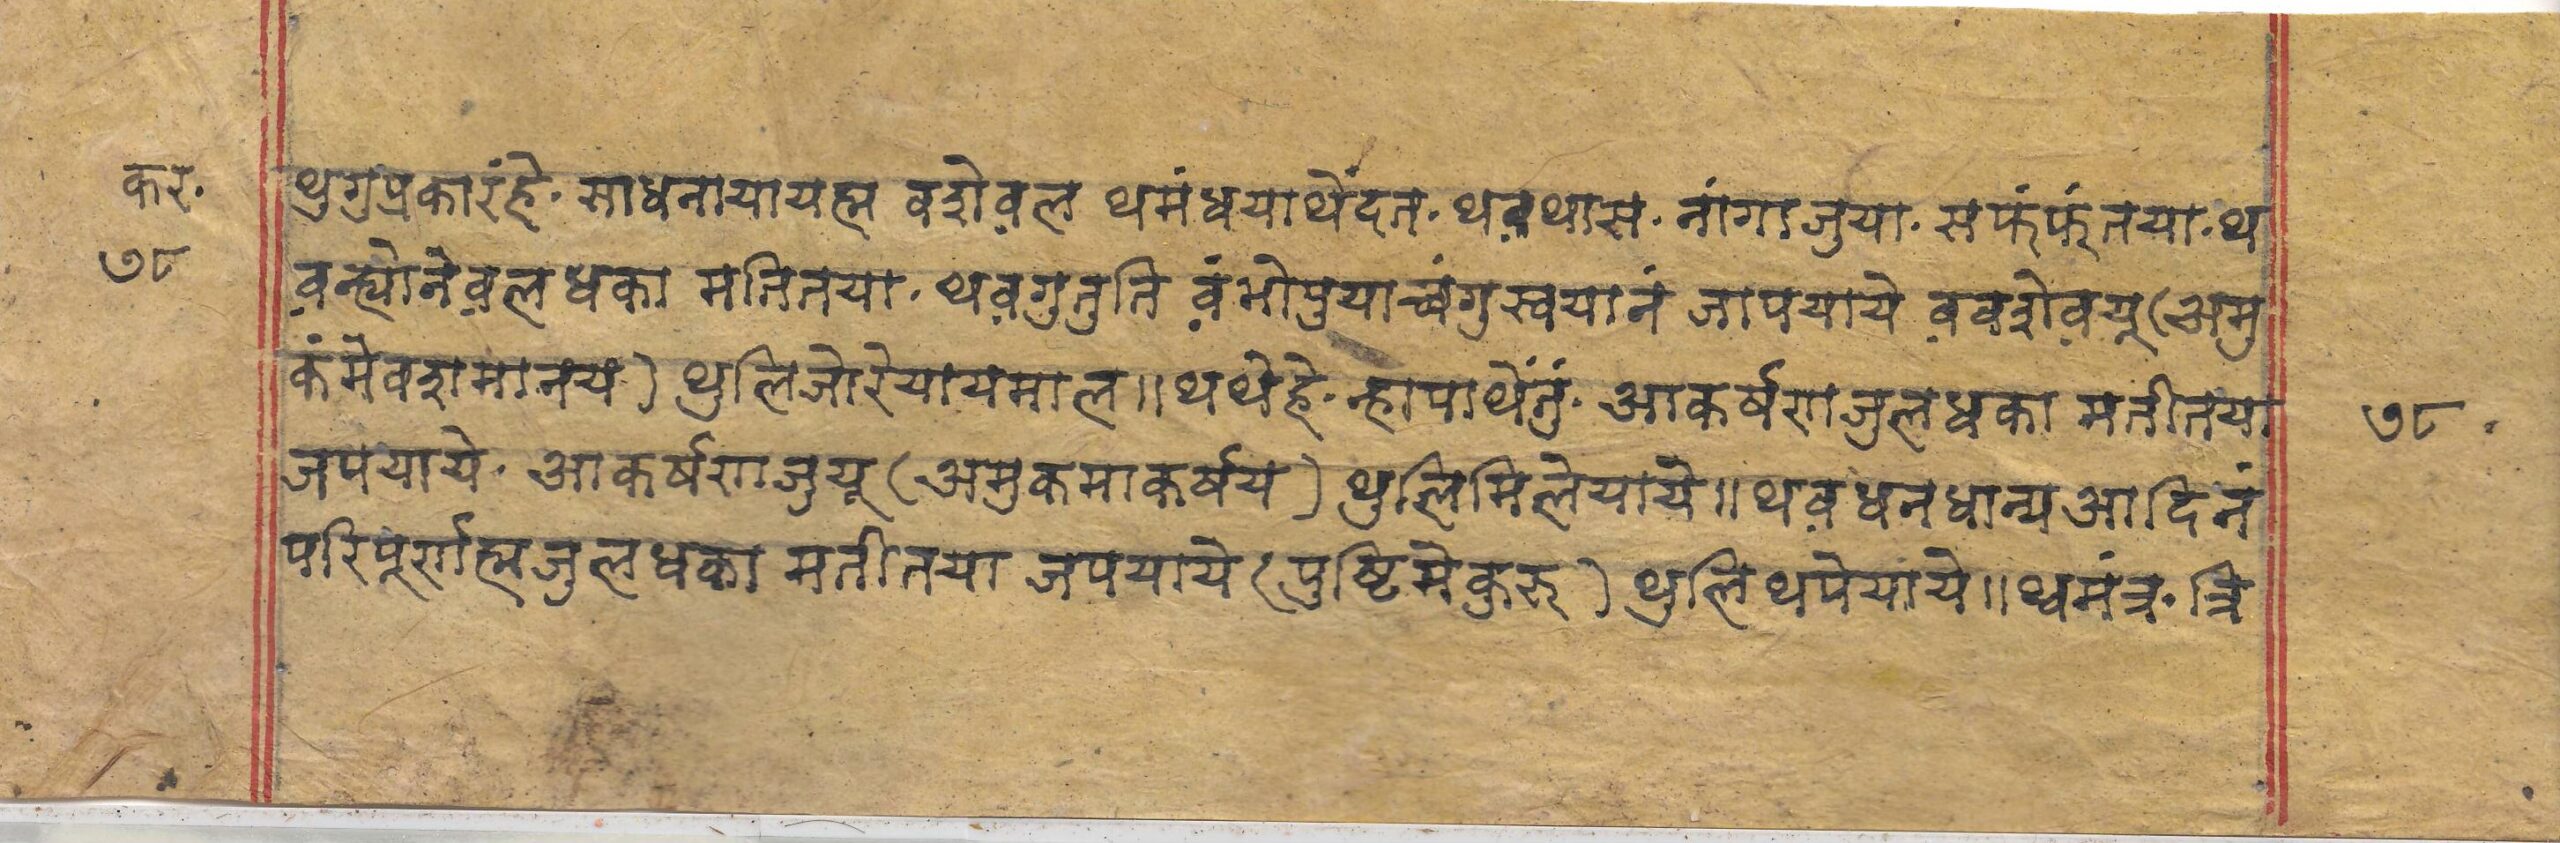 कर.
७८
थुगुप्रकारंहे. साधनायायह्म वशेवल थमंधयाथेंदत. थवथास. नांगाजुया. सफंफंतया. थ
वन्ह्योनेवलधका मतितया. थवगुतुति वंभोपुयाच्वंगुस्वयानं जापयाये ववशेवयू (अमु
कंमेवशमानय) थुलिजोरेयायमाल॥ थथेहे. न्हापाथेंतुं. आकर्षणजुलधका मतीतया
७८.
जपयाये. आकर्षणजुयू (अमुकमाकर्षय) थुलिमिलेयाये॥ थवधनधान्यआदिनं
परिपूर्णह्मजुलधका मतीतया जपयाये (पुष्टिमेकुरु) थुलिथपेयाये॥ थ्वमंत्र. त्रि